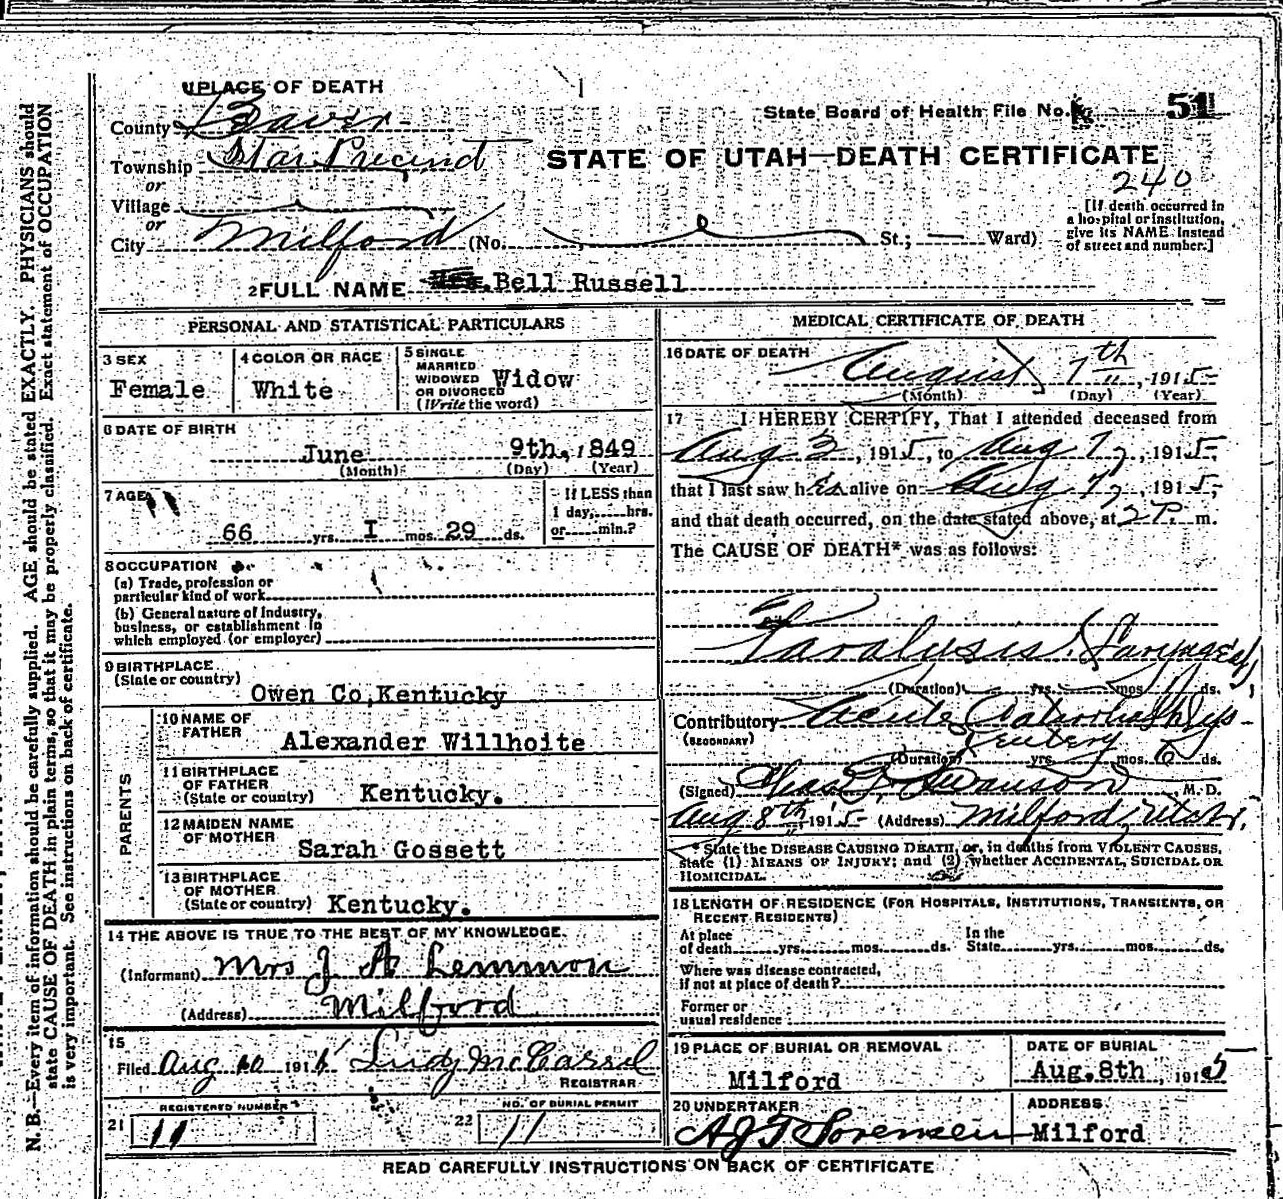 PLACE OF DEATH
State Board of Health File No. 51
County Beaver
Township Star Precinct
STATE OF UTAH—DEATH CERTIFICATE
240
or
Village
or
City Milford (No. St.; Ward)
[If death occurred in
a hospital or institution,
give its NAME instead
of street and number.]
2 FULL NAME Bell Russell
PERSONAL AND STATISTICAL PARTICULARS
3 SEX
Female
4 COLOR OR RACE
White
5 SINGLE
MARRIED
WIDOWED
OR DIVORCED
(Write the word)
Widow
6 DATE OF BIRTH
June 9th, 1849
(Month) (Day) (Year)
7 AGE
66 yrs. I mos. 29 ds.
If LESS than
1 day, hrs.
or min.?
8 OCCUPATION
(a) Trade, profession or
particular kind of work
(b) General nature of industry,
business, or establishment in
which employed (or employer)
9 BIRTHPLACE
(State or country)
Owen Co, Kentucky
PARENTS
10 NAME OF
FATHER
Alexander Willhoite
11 BIRTHPLACE
OF FATHER
(State or country) Kentucky.
12 MAIDEN NAME
OF MOTHER
Sarah Gossett
13 BIRTHPLACE
OF MOTHER
(State or country) Kentucky.
14 THE ABOVE IS TRUE TO THE BEST OF MY KNOWLEDGE.
(Informant) Mrs J A Lemmon
(Address) Milford
15
Filed Aug 10 191
REGISTRAR
REGISTERED NUMBER
21 11
NO. OF BURIAL PERMIT
22 11
MEDICAL CERTIFICATE OF DEATH
16 DATE OF DEATH
August 7th, 1915
(Month) (Day) (Year)
17 I HEREBY CERTIFY, That I attended deceased from
Aug 3, 1915, to Aug 7, 1915,
that I last saw her alive on Aug 7, 1915,
and that death occurred, on the date stated above, at 2 P. m.
The CAUSE OF DEATH* was as follows:
Paralysis (Laryngeal)
(Duration) yrs. mos. ds.
Contributory Acute
(SECONDARY)
(Duration) yrs. mos. 6 ds.
(Signed) Swanson M. D.
Aug 8th, 1915 (Address) Milford, Utah.
* State the DISEASE CAUSING DEATH, or, in deaths from VIOLENT CAUSES,
state (1) MEANS OF INJURY; and (2) whether ACCIDENTAL, SUICIDAL OR
HOMICIDAL.
18 LENGTH OF RESIDENCE (FOR HOSPITALS, INSTITUTIONS, TRANSIENTS, OR
RECENT RESIDENTS)
At place
of death yrs. mos. ds.
In the
State yrs. mos. ds.
Where was disease contracted,
if not at place of death?
Former or
usual residence
19 PLACE OF BURIAL OR REMOVAL
Milford
DATE OF BURIAL
Aug. 8th, 1915
20 UNDERTAKER
A J T Sorensen
ADDRESS
Milford
READ CAREFULLY INSTRUCTIONS ON BACK OF CERTIFICATE
N. B.—Every item of information should be carefully supplied. AGE should be stated EXACTLY. PHYSICIANS should
state CAUSE OF DEATH in plain terms, so that it may be properly classified. Exact statement of OCCUPATION
is very important. See instructions on back of certificate.